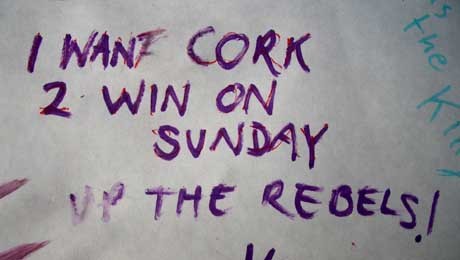 I WANT CORK
2 WIN ON
SUNDAY
UP THE REBELS!
is the King